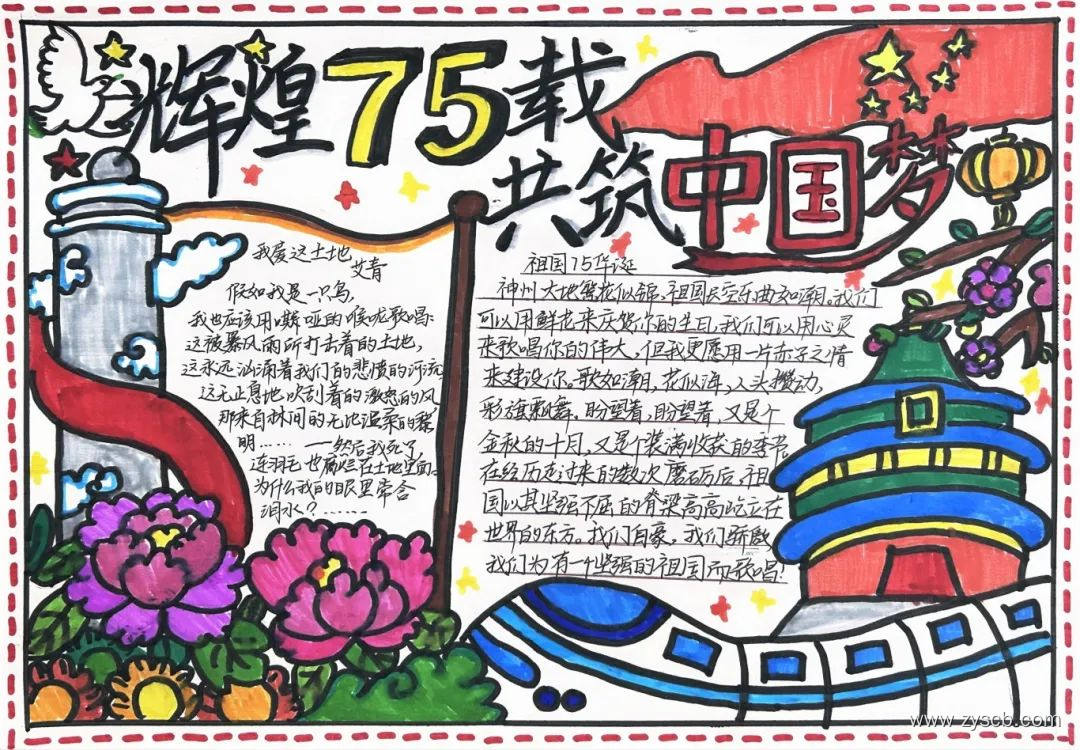 辉煌75载
共筑中国梦
我爱这土地
艾青
假如我是一只鸟，
我也应该用嘶哑的喉咙歌唱：
这被暴风雨所打击着的土地，
这永远汹涌着我们的悲愤的河流
这无止息地吹刮着的激怒的风，
那来自林间的无比温柔的黎
明……——然后我死了，
连羽毛也腐烂在土地里面。
为什么我的眼里常含
泪水？……
祖国75华诞
神州大地繁花似锦，祖国长空乐曲如潮，我们
可以用鲜花来庆贺你的生日，我们可以用心灵
来歌唱你的伟大，但我更愿用一片赤子之情
来建设你。歌如潮，花似海，人头攒动，
彩旗飘舞。盼望着，盼望着，又是个
金秋的十月，又是个装满收获的季节
在经历走过来的数次磨砺后，祖
国以其坚强不屈的脊梁高高屹立在
世界的东方。我们自豪，我们骄傲
我们为有一个坚强的祖国而歌唱！
www.zyscb.com